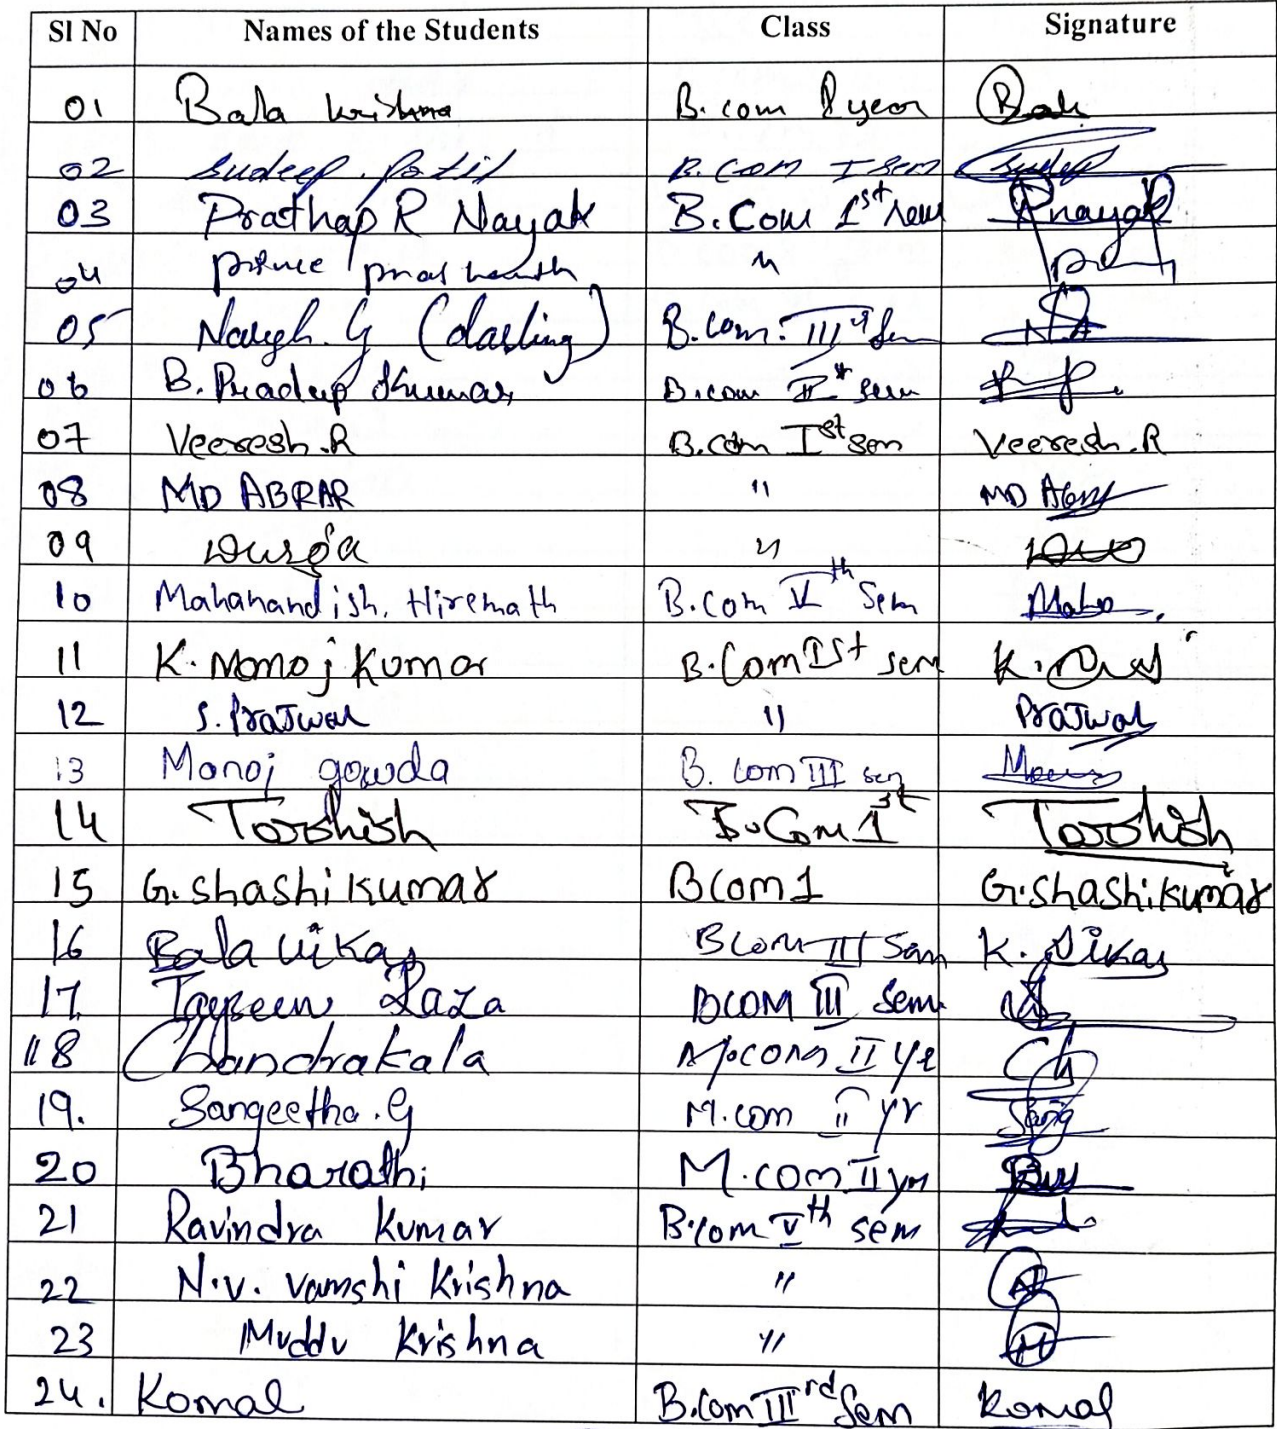 Sl No Names of the Students Class Signature
01 Bala krishna B.com I year Bala
02 Sudeep. Patil B.COM I sem Sudeep
03 Prathap R Nayak B.Com 1st sem Rnayak
04 prince prashanth "
05 G (darling) B.Com. III Sem
06 B. Pradeep Kumar B.com sem
07 Veeresh.R B.com Ist sem Veeresh.R
08 MD ABRAR " MD
09 Durga "
10 Mahanandish. Hiremath B.Com Vth Sem Maha
11 K. Manoj Kumar B.Com Ist sem K.
12 S. Prajwal " Prajwal
13 Manoj gowda B. Com III sem
14 Tarshish B.Com 1st Tarshish
15 G. Shashi Kumar BCom 1 G.Shashi.Kumar
16 Bala Vikas BCom III Sem K. Vikas
17. Raza BCOM III Sem
18 Chandrakala M.com II yr Ch
19. Sangeetha.G M.com II yr Sang
20 Bharathi M.com II yr
21 Ravindra Kumar B.com Vth sem
22 N.V. Vamshi Krishna "
23 Muddu Krishna "
24. Komal B.Com IIIrd Sem Komal